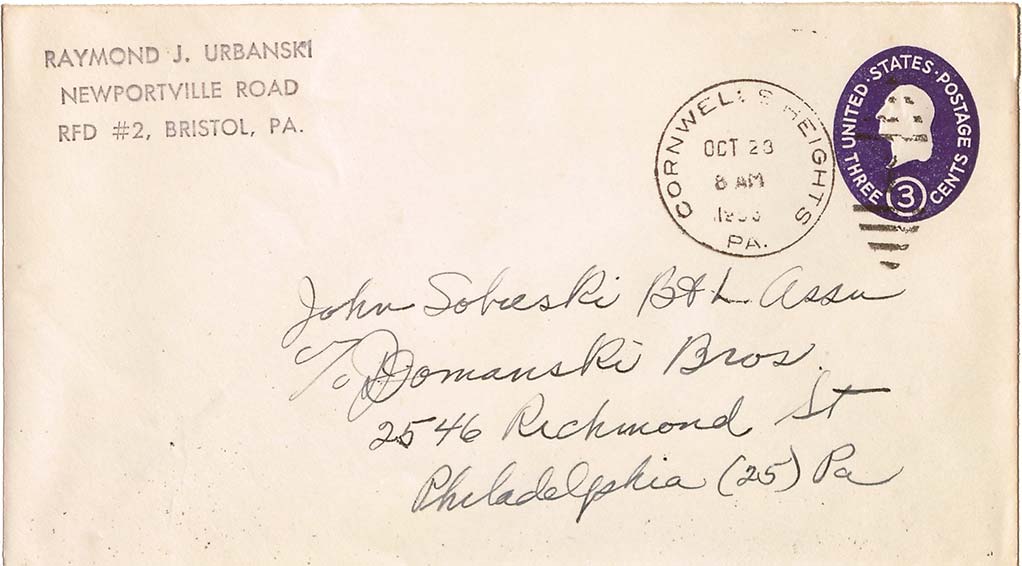 RAYMOND J. URBANSKI
NEWPORTVILLE ROAD
RFD #2, BRISTOL, PA.
CORNWELLS HEIGHTS
OCT 23
8 AM
PA.
UNITED·STATES·POSTAGE
THREE 3 CENTS
John Sobieski B & L Assn
c/o Domanski Bros.
2546 Richmond St
Philadelphia (25) Pa